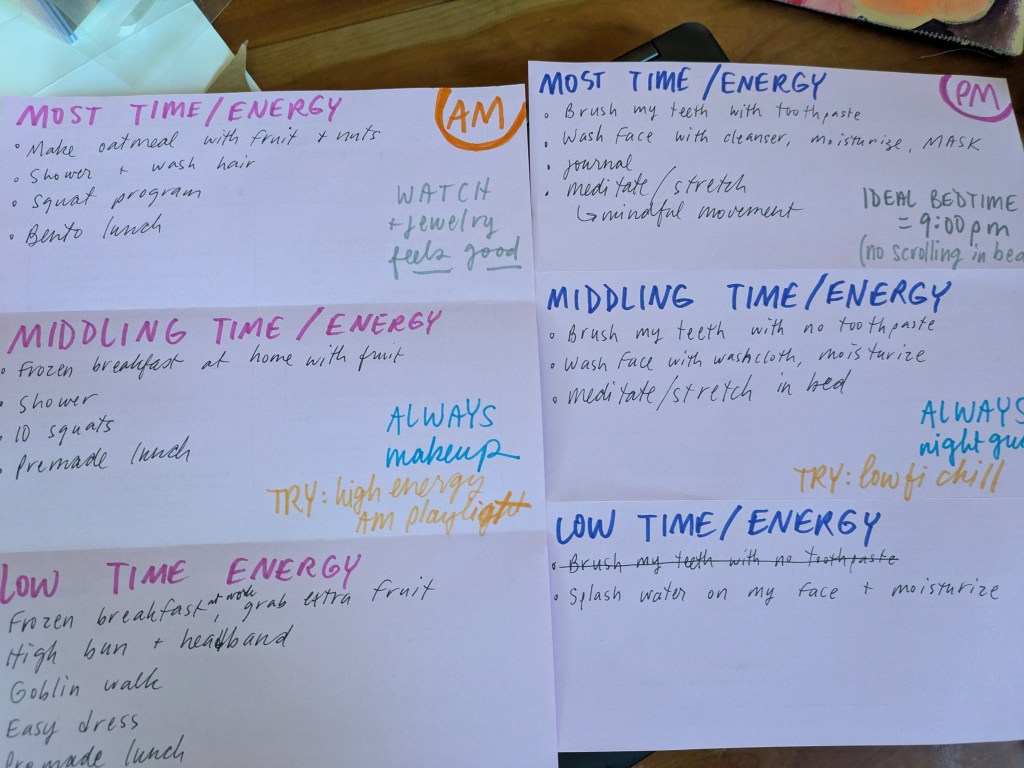 MOST TIME/ENERGY
AM
• Make oatmeal with fruit + nuts
• Shower + wash hair
• Squat program
• Bento lunch
WATCH
+ jewelry
feels good
MIDDLING TIME/ENERGY
• Frozen breakfast at home with fruit
• Shower
• 10 squats
• Premade lunch
ALWAYS
makeup
TRY: high energy
AM playlist
LOW TIME ENERGY
Frozen breakfast at work, grab extra fruit
High bun + headband
Goblin walk
Easy dress
Premade lunch
MOST TIME/ENERGY
PM
• Brush my teeth with toothpaste
• Wash face with cleanser, moisturize, MASK
• journal
• meditate/stretch
↳ mindful movement
IDEAL BEDTIME
= 9:00 pm
(no scrolling in bed
MIDDLING TIME/ENERGY
• Brush my teeth with no toothpaste
• Wash face with washcloth, moisturize
• meditate/stretch in bed
ALWAYS
night gu
TRY: low fi chill
LOW TIME/ENERGY
• Brush my teeth with no toothpaste
• Splash water on my face + moisturize